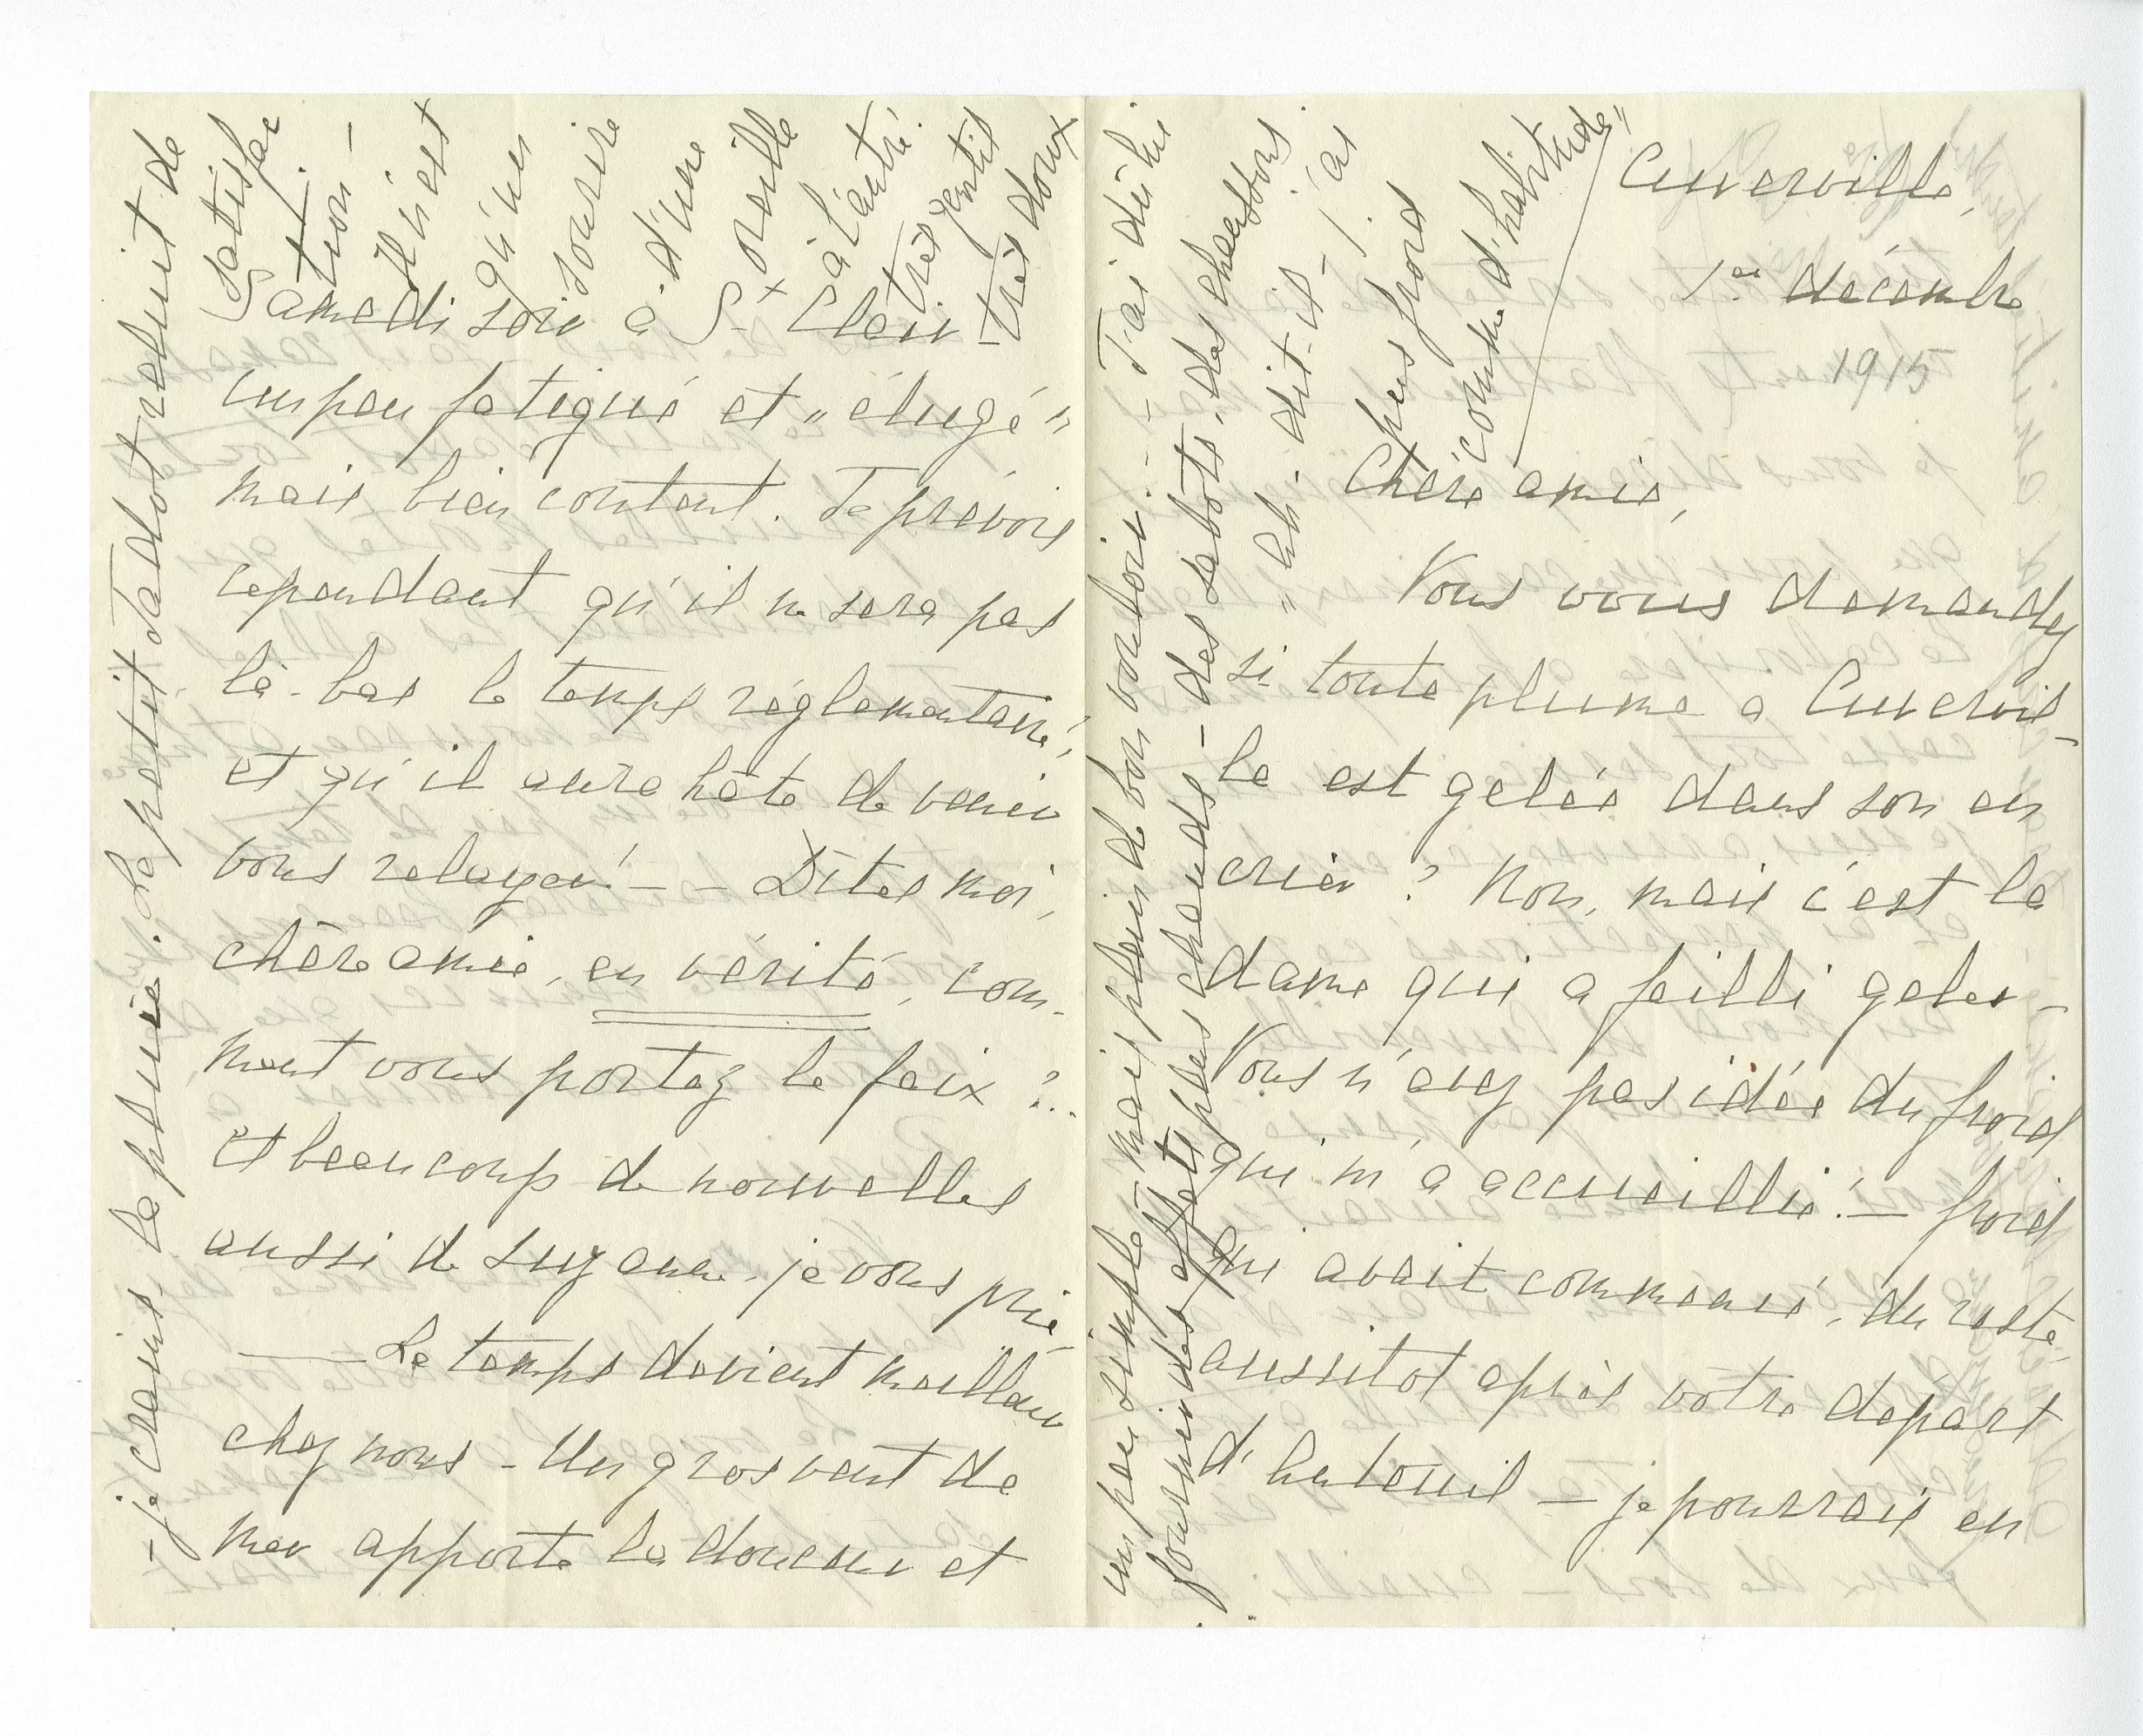 Cuverville,
1er décembre
1915
Chère amie,
Vous vous demandez
si toute plume a Cuvervil-
le est gelée dans son en
crier ? Non, mais c'est la
dame qui a failli geler –
Vous n'avez pas idée du froid
qui m'a accueillie ! – froid
qui avait commencé, du reste,
aussitot après votre départ
d'Auteuil – je pourrais en
Samedi soir à St Clair –
un peu fatigué et "élugé"
mais bien content. Je prévois
cependant qu'il ne sera pas
là-bas le temps réglementaire,
et qu'il aura hâte de venir
vous relayer ! – – Dites moi,
chère amie, en vérité, com-
ment vous portez le faix ?..
Et beaucoup de nouvelles
aussi de Suzanne, je vous prie –
— Le temps devient meilleur
chez nous – Un gros vent de
mer apporte la douceur et
– je crains, la pluie. Le petit Jadot reluit de
satisfac
tion –
Il n'est
qu'un
sourire
d'une
oreille
à l'autre
très gentil
très doux
un peu simple – mais plein de bon vouloir. – J'ai dû lui
fournir des effets plus chauds – des sabots, des chaussons
"Ah. dit-il – j'as
pus froid
comme d'habitude"